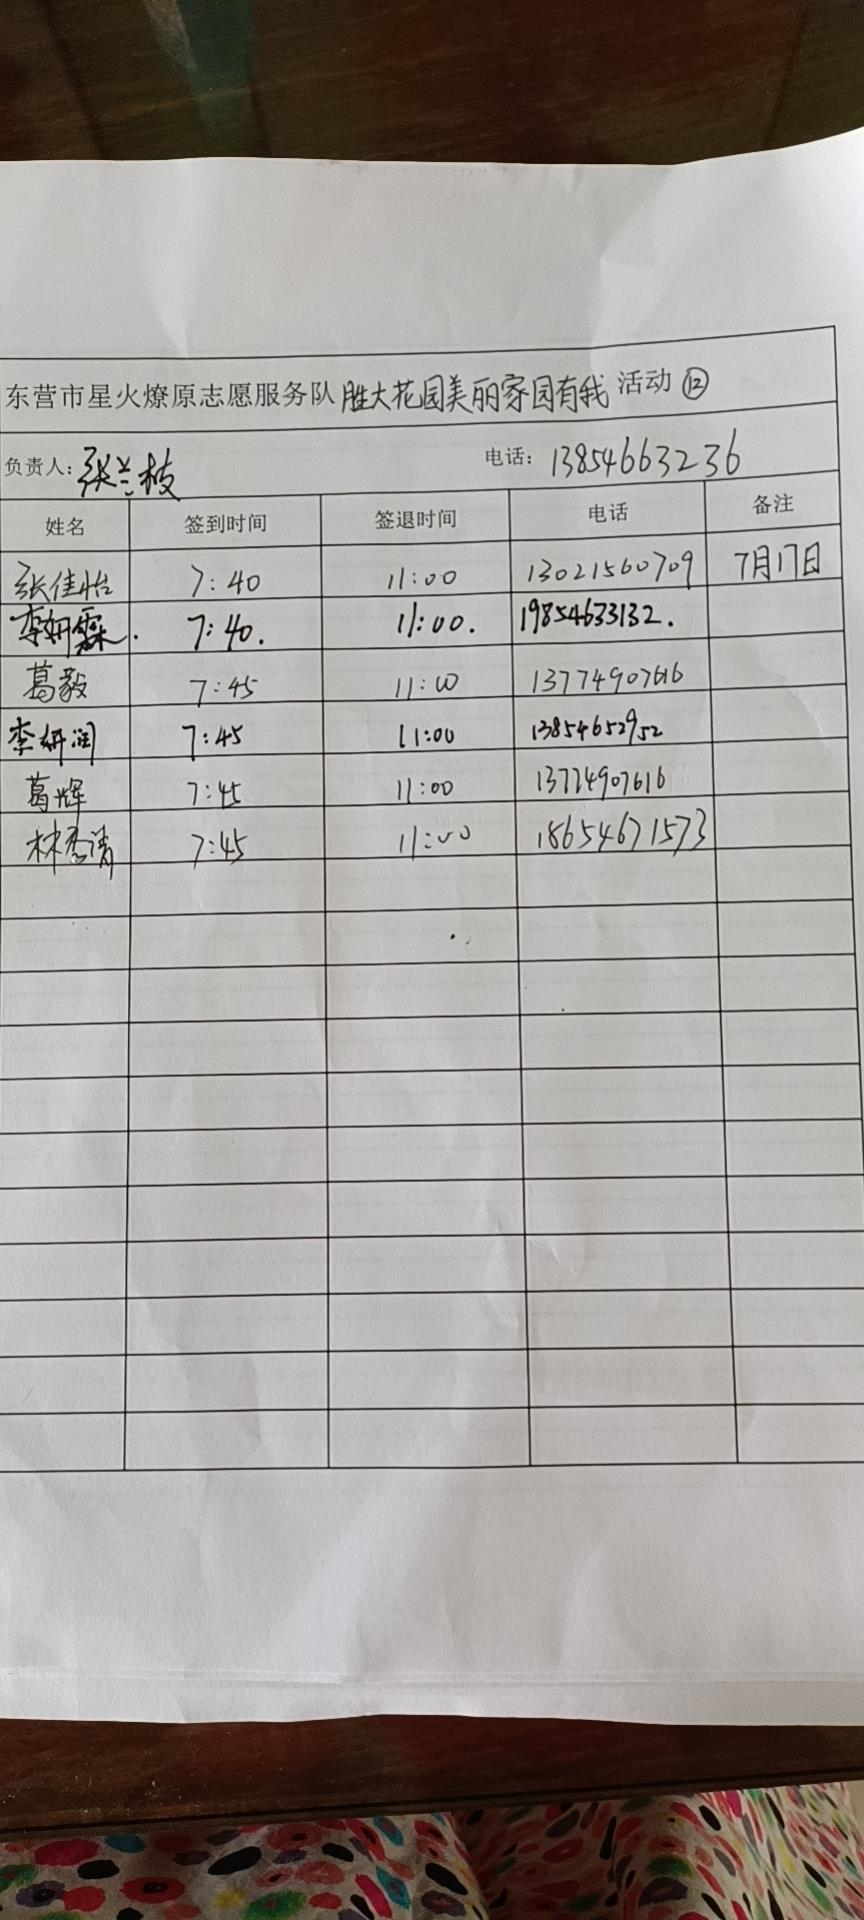 东营市星火燎原志愿服务队胜大花园美丽家园有我活动⑫
负责人：张兰枝 电话：13854663236
姓名 签到时间 签退时间 电话 备注
张佳怡 7:40 11:00 13021560709 7月17日
李妍霖. 7:40. 11:00. 19854633132.
葛毅 7:45 11:00 13774907616
李妍润 7:45 11:00 13854652952
葛辉 7:45 11:00 13774907616
林秀清 7:45 11:00 18654671573